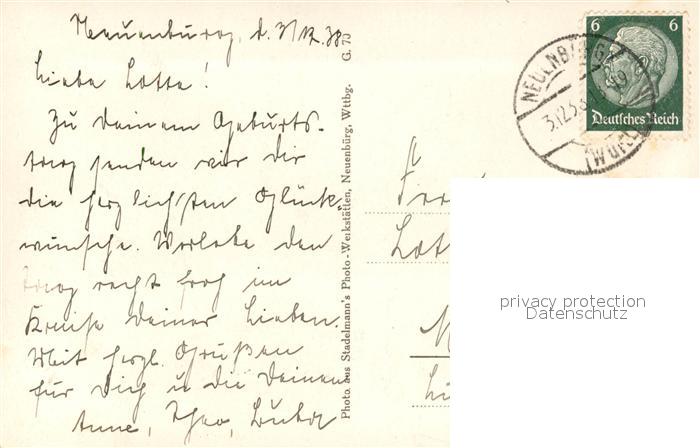 Neuenburg, d. 3/12.38
Liebe Lotte!
Zu Deinem Geburts-
tag senden wir dir
die herzlichsten Glück-
wünsche. Verlebe den
Tag recht froh im
Kreise Deiner Lieben.
Mit herzl. Grüßen
für Dich u die Deinen
Anne, Theo,
Photo aus Stadelmann's Photo-Werkstätten, Neuenbürg, Wttbg. G. 70
6 6
Deutsches Reich
NEUENBÜRG
(WÜRTT)
Lott
privacy protection
Datenschutz